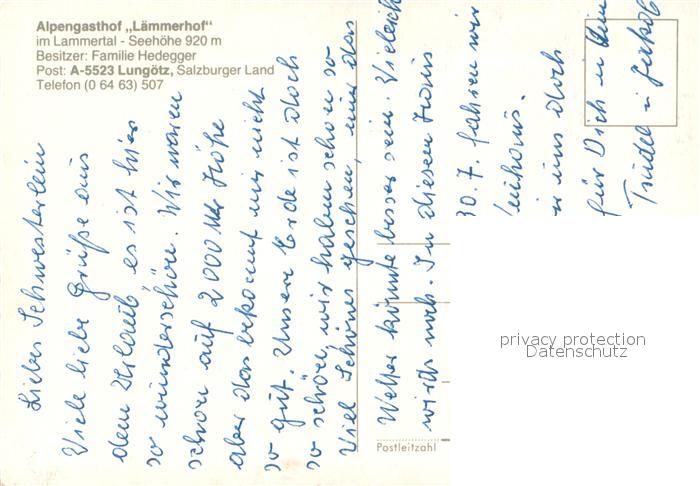 Alpengasthof „Lämmerhof“
im Lammertal - Seehöhe 920 m
Besitzer: Familie Hedegger
Post: A-5523 Lungötz, Salzburger Land
Telefon (0 64 63) 507
Liebes Schwesterlein
Viele liebe Grüße aus
dem Urlaub, es ist hier
so wunderschön. Wir waren
schon auf 2000 Mtr Höhe
aber das bekommt mir nicht
so gut. Unsere Erde ist doch
so schön, wir haben schon so
viel Schönes gesehen, nur das
Wetter könnte besser sein. Vielleicht
wirds noch. In diesem Haus
30.7. fahren wir
uns doch
für Dich u
Trudel u Jakob
privacy protection
Datenschutz
Postleitzahl